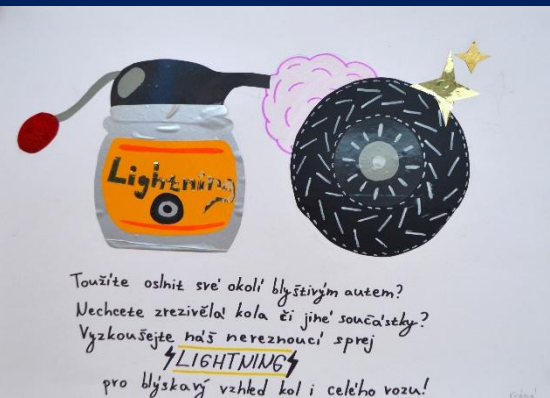 Lightning
Toužíte oslnit své okolí blyštivým autem?
Nechcete zrezivělá kola či jiné součástky?
Vyzkoušejte náš nereznoucí sprej
LIGHTNING
pro blýskavý vzhled kol i celého vozu!